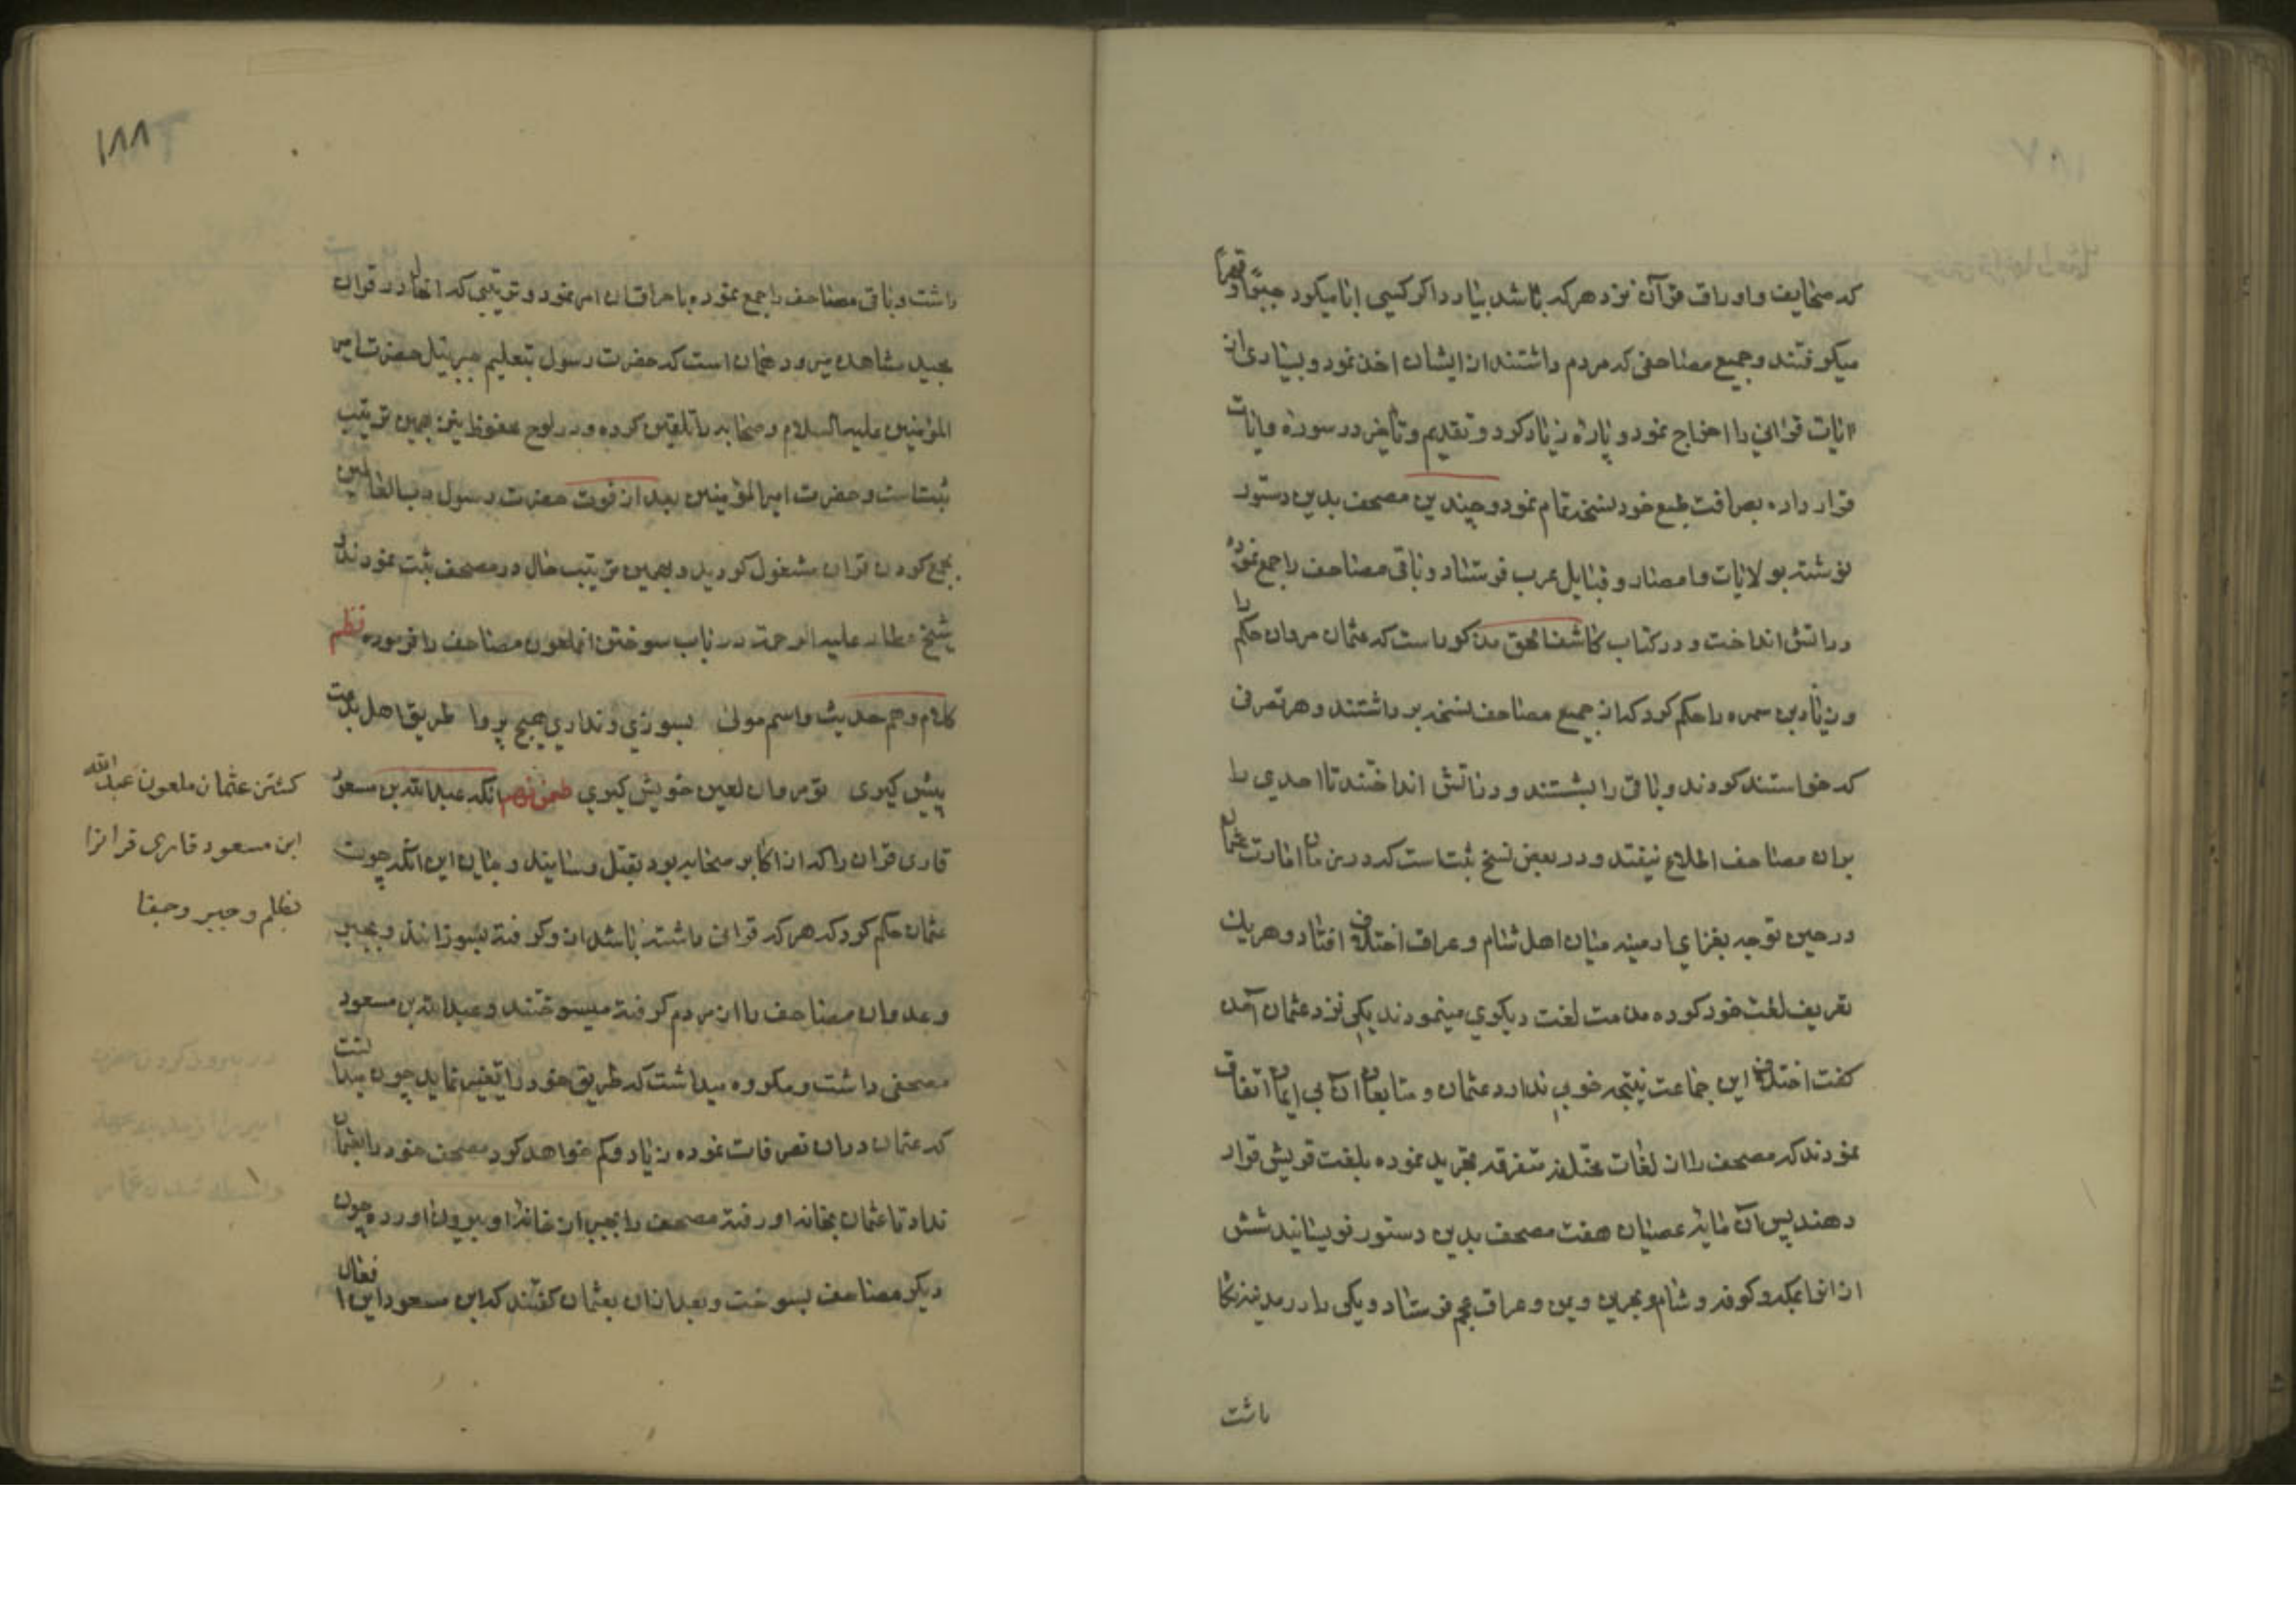 که صحایف و اوراق قرآن نزد هر که باشد بیارد اگر کسی ابا میکرد جبرا و قهرا
میکرفتند و جمیع مصاحفی که مردم داشتند از ایشان اخذ نمود و بسیاری از
آیات قرانی را اخراج نمود و پاره زیاد کرد و تقدیم و تأخیر در سوره و ایات
قرار داده بصرافت طبع خود نسخه تمام نمود و چندین مصحف بدین دستور
نوشته بولایات و امصار و قبایل عرب فرستاد و باقی مصاحف را جمع نموده
در اتش انداخت و در کتاب کاشف الحق مذکور است که عثمان مروان حکم را
و زیاد بن سمره را حکم کرد که از جمیع مصاحف نسخه برداشتند و هر تصرفی
که خواستند کردند و باقی را بشستند و در اتش انداختند تا احدی را
بران مصاحف اطلاع نیفتد و در بعض نسخ ثبت است که در زمان امارت عثمان
در حین توجه بغزای ارمینه میان اهل شام و عراق اختلاف افتاد و هر یک
تعریف لغت خود کرده مذمت لغت دیکری مینمودند یکی نزد عثمان آمد
کفت اختلاف این جماعت نتیجه خوبی ندارد عثمان و متابعان آن بی ایمان اتفاق
نمودند که مصحف را از لغات مختلفه متفرقه تجرید نموده بلغت قریش قرار
دهند پس آن مایۀ عصیان هفت مصحف بدین دستور نویسانید شش
از انها بمکه و کوفه و شام و بحرین و یمن و عراق عجم فرستاد و یکی را در مدینه نکا
داشت
۱۸۸
داشت و باقی مصاحف را جمع نموده باحراق ان امر نمود و ترتیبی که الحال در قران
مجید مشاهده میرود همان است که حضرت رسول بتعلیم جبرئیل حضرت امیر
المؤمنین علیه السلام و صحابه را تلقین کرده و در لوح محفوظ نیز بهمین ترتیب
ثبت است و حضرت امیر المؤمنین بعد از فوت حضرت رسول رب العالمین
بجمع کردن قران مشغول کردید و بهمین ترتیب حال در مصحف ثبت نمودند
شیخ عطار علیه الرحمة در باب سوختن انملعون مصاحف را فرموده نظم
کلام و هم حدیث و اسم مولی بسوزی و نداری هیچ پروا طریق اهل بدعت
پیش کیری تو مروان لعین خویش کیری انکه عبد الله بن مسعود
قاری قران را که از اکابر صحابه بود بقتل رسانید و بیان این انکه چون
عثمان حکم کرد که هر که قرانی داشته باشد از و کرفته بسوزانند و بجبر
و عدوان مصاحف را از مردم کرفته میسوختند و عبد الله بن مسعود
مصحفی داشت و مکروه میداشت که طریق خود را تغییر نماید چون میدانست
که عثمان دران تصرفات نموده زیاد و کم خواهد کرد مصحف خود را بعثمان
نداد تا عثمان بخانه او رفته مصحف را بجبر از خانۀ او بیرون اورده چون
دیکر مصاحف بسوخت و بعد از ان بعثمان کفتند که ابن مسعود این افعال
کشتن عثمان ملعون عبد الله
ابن مسعود قاری قرانرا
بظلم و جبر و جفا